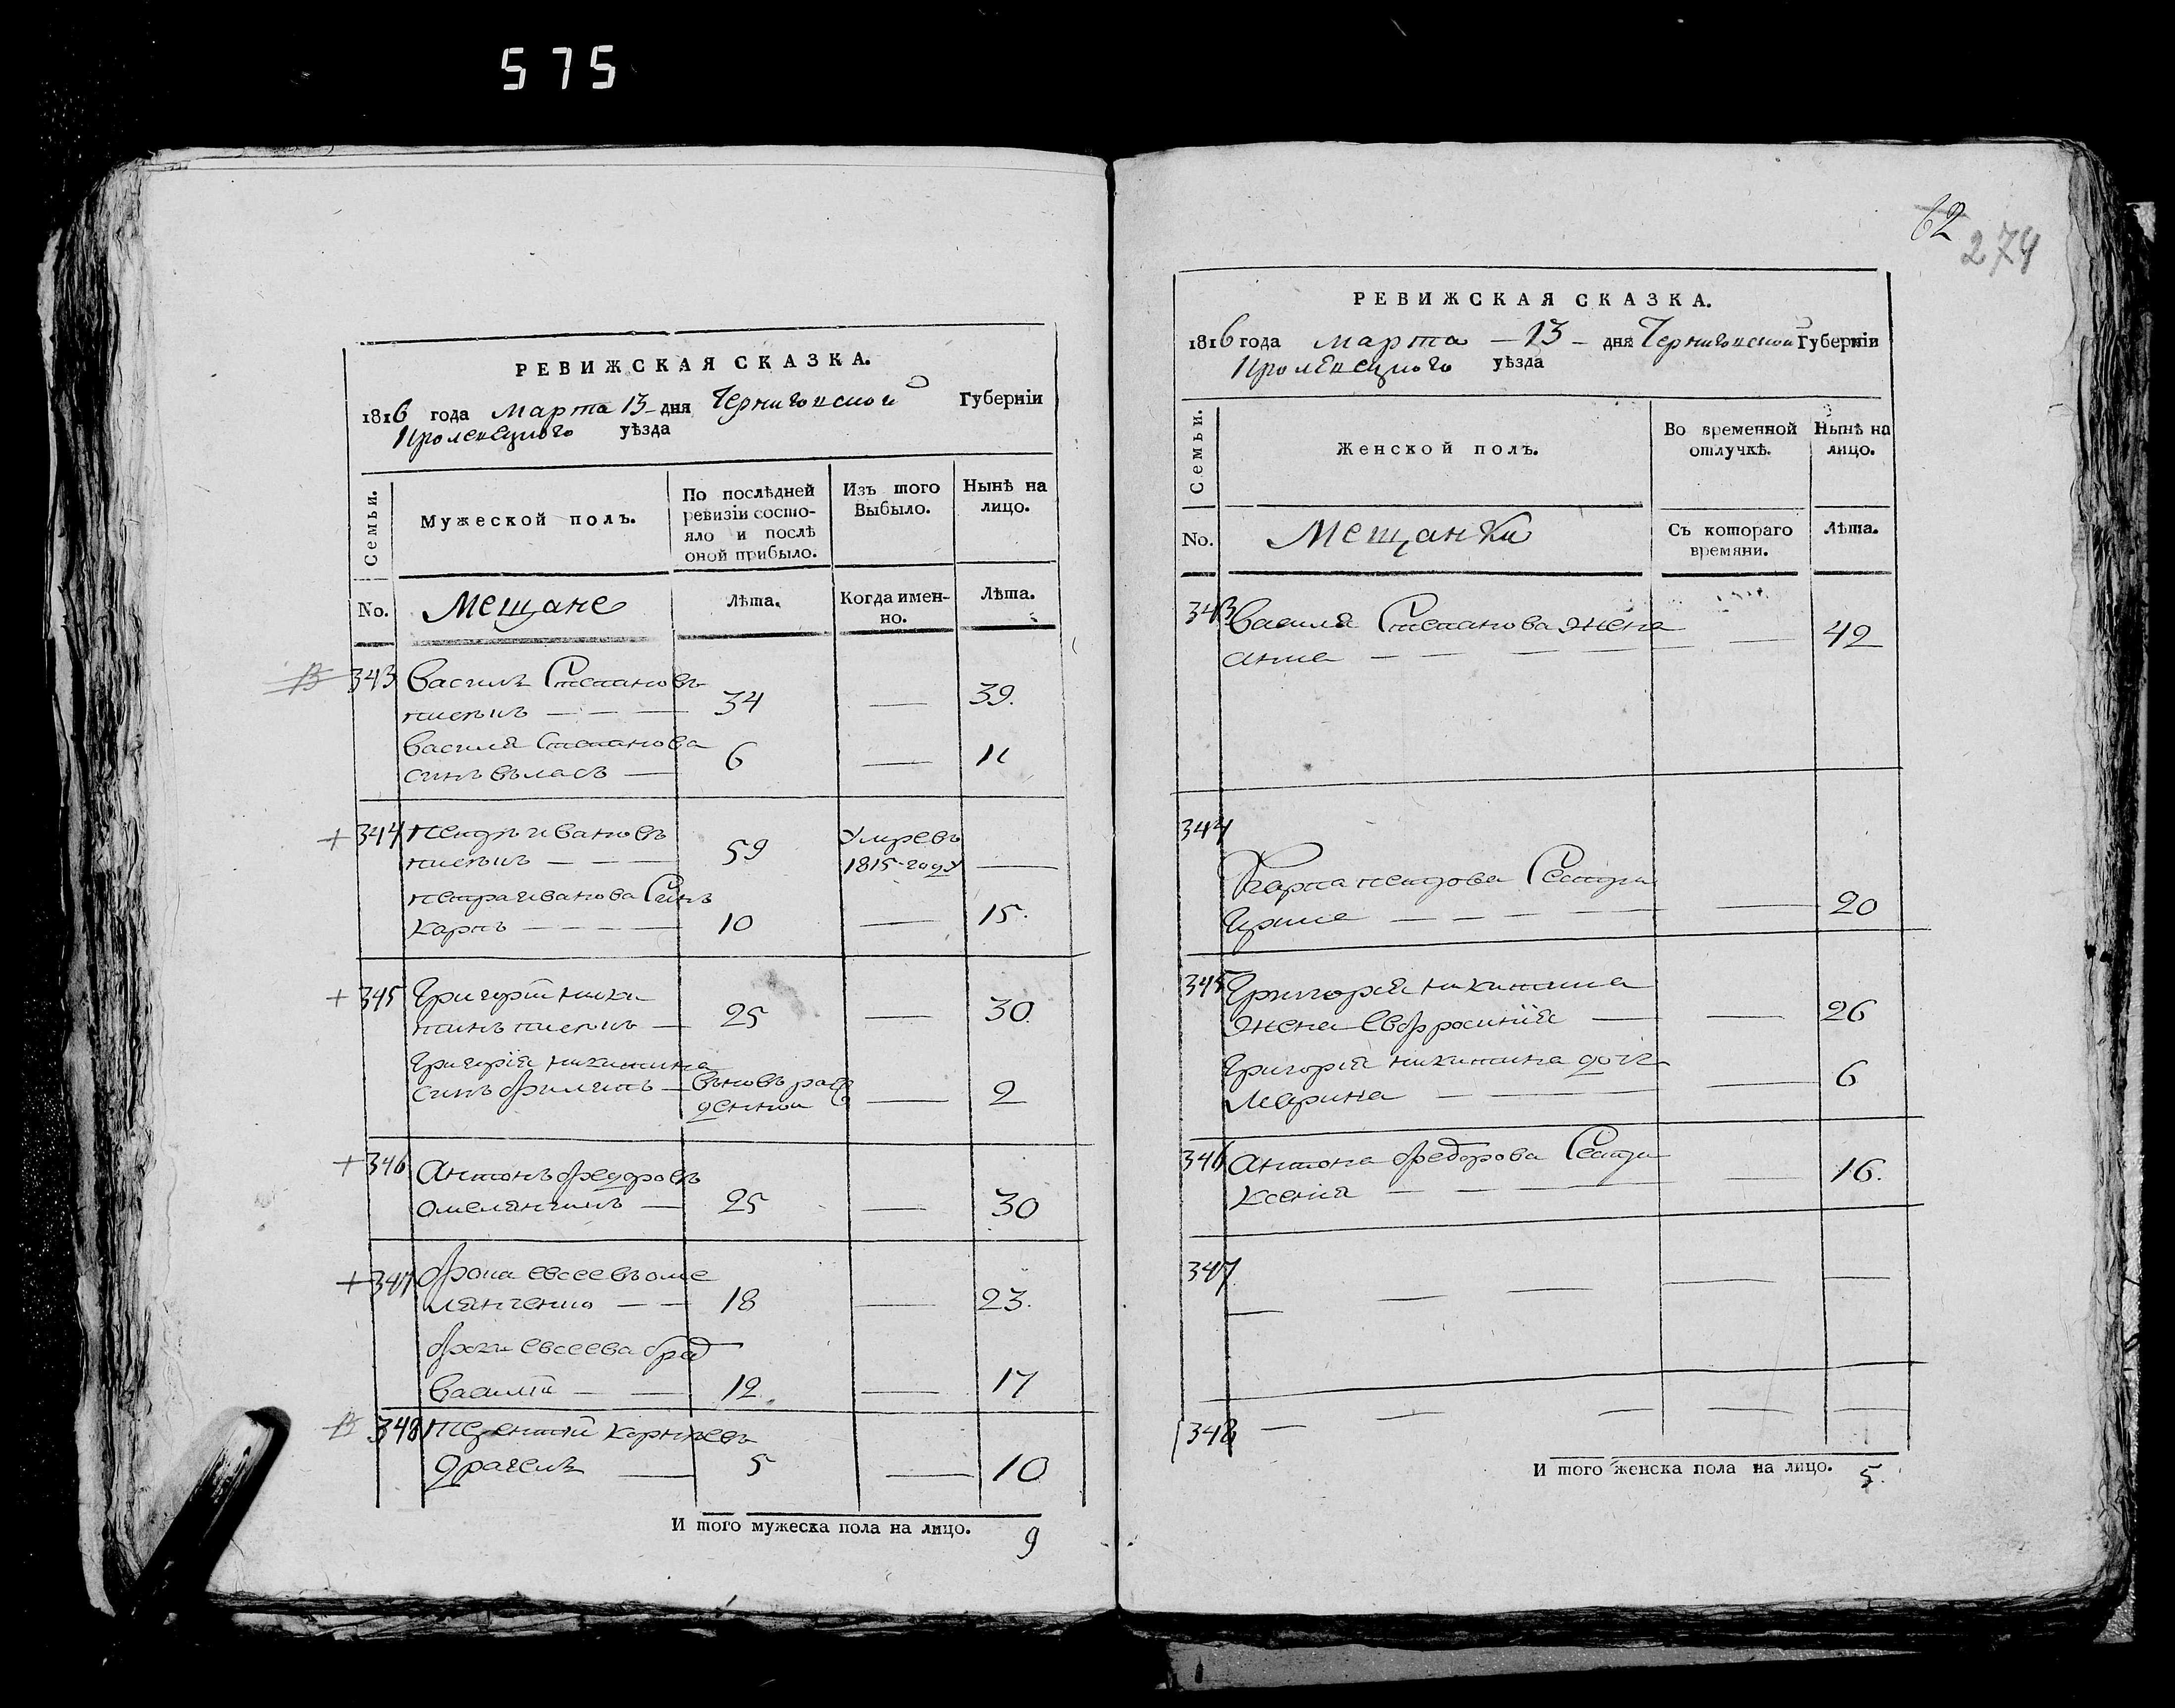 575
РЕВИЖСКАЯ СКАЗКА.
1816 года марта 13 дня Черниговской Губерніи
Кролевецкого уѣзда
Семьи.
Мужеской полъ.
По послѣдней ревизіи состо-
яло и послѣ
оной прибыло.
Изъ того
Выбыло.
Нынѣ на
лицо.
No.
Мещане
Лѣта.
Когда имен-
но.
Лѣта.
343 Василь Степановъ
34 — 39.
Василя Степанова
синъ власъ — 6 — 11
+ 344 петръ ивановъ
59 Умревъ
1815 году —
петра иванова Синъ
карпъ — 10 — 15.
+ 345 Григорій ники-
тинъ — 25 — 30.
Григорія никитина
синъ филипъ — вновъ рож
денной — 2
+ 346 антонъ федоровъ
25 — 30
+ 347 евсеевъ оме
лянченко — 18 — 23.
евсеева брат
василій — 12. — 17
348 терентій корнѣевъ
5 — 10
И того мужеска пола на лицо. 9
62
274
РЕВИЖСКАЯ СКАЗКА.
1816 года марта — 13 — дня Черниговской Губерніи
Кролевецкого уѣзда
Семьи.
Женской полъ.
Во временной
отлучкѣ.
Нынѣ на
лицо.
No.
Мещанки
Съ котораго
времяни.
Лѣта.
343 Василя Степанова жена
анна — 42
344
Карпа петрова Сестра
Ирина — 20
345 Григорія никитина
жена Евфросинія — 26
Григорія никитина дочь
Марина — 6
346 антона федорова Сестра
Ксенія — 16.
347 —
348 —
И того женска пола на лицо. 5.